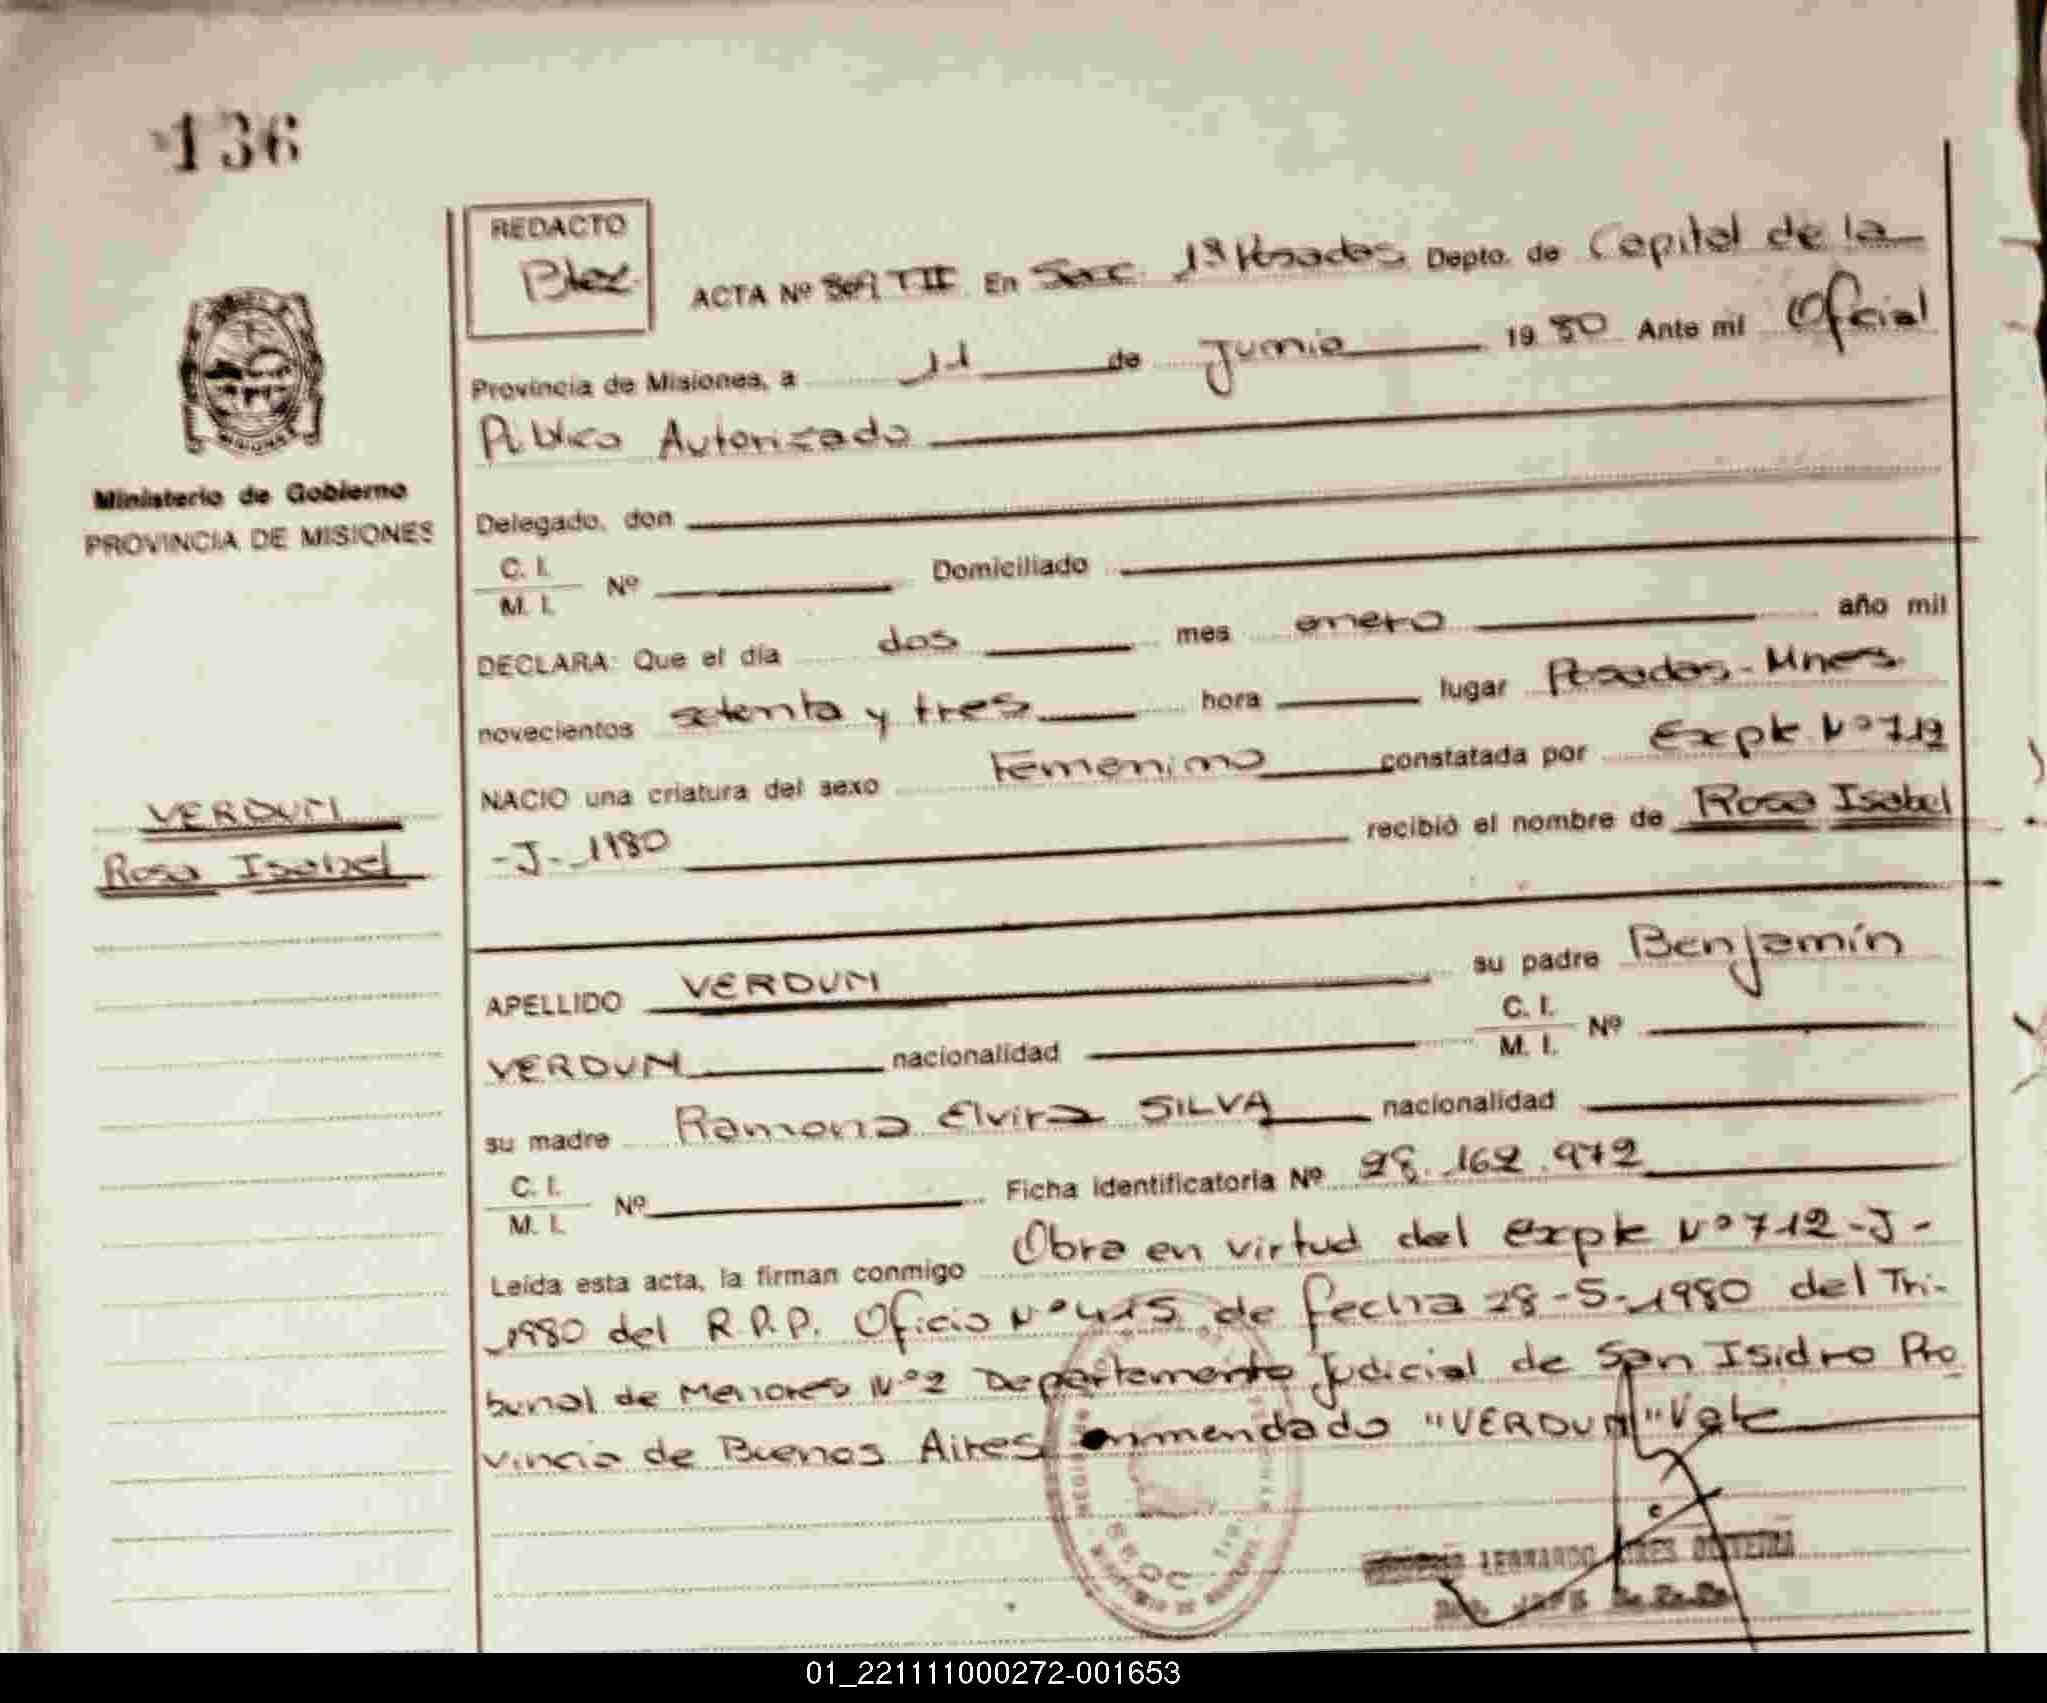 136
REDACTO
ACTA Nº 309 TII En Secc. 1ª Posadas Depto. de Capital de la
Provincia de Misiones, a 11 de Junio 1980 Ante mi Oficial
Público Autorizado
Delegado, don
C. I.
M. I. Nº Domiciliado
DECLARA: Que el día dos mes enero año mil
novecientos setenta y tres hora lugar Posadas - Mnes.
NACIO una criatura del sexo Femenino constatada por Expte Nº 712
-J- 1980 recibió el nombre de Rosa Isabel
APELLIDO VERDUN su padre Benjamín
VERDUN nacionalidad C. I.
M. I. Nº
su madre Ramona Elvira SILVA nacionalidad
C. I.
M. I. Nº Ficha identificatoria Nº 28.162.972
Leída esta acta, la firman conmigo Obra en virtud del expte Nº 712-J-
1980 del R.P.P. Oficio Nº 415 de fecha 28-5-1980 del Tri-
bunal de Menores Nº 2 Departamento Judicial de San Isidro Pro
vincia de Buenos Aires enmendado "VERDUN" Vale
MISIONES
Ministerio de Gobierno
PROVINCIA DE MISIONES
VERDUN
Rosa Isabel
01_221111000272-001653